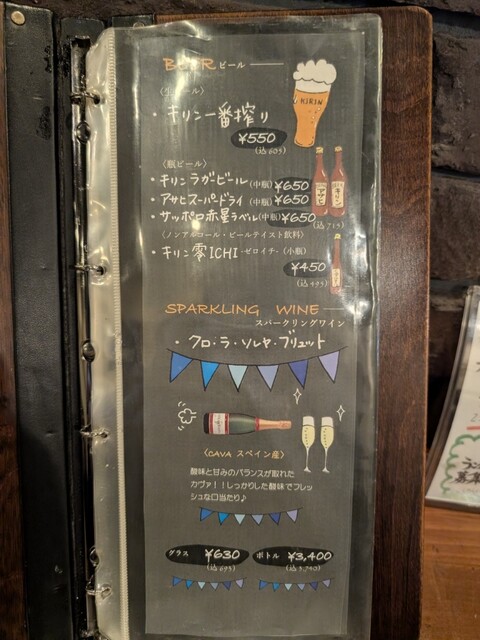 BEER ビール
KIRIN
・キリン一番搾り
¥550
(込605)
〈瓶ビール〉
・キリンラガービール(中瓶) ¥650
・アサヒスーパードライ (中瓶) ¥650
・サッポロ赤星ラベル(中瓶) ¥650
(込715)
〈ノンアルコール・ビールテイスト飲料〉
・キリン零ICHI -ゼロイチ- (小瓶)
¥450
(込495)
SPARKLING WINE
スパークリングワイン
・クロ・ラ・ソレヤ・ブリュット
〈CAVA スペイン産〉
酸味と甘みのバランスが取れた
カヴァ！！しっかりした酸味でフレッ
シュな口当たり♪
グラス ¥630 ボトル ¥3,400
(込693) (込3,740)